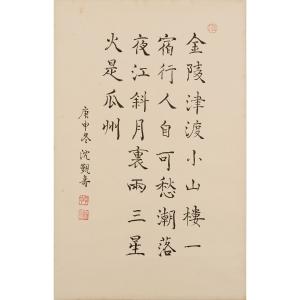 金陵津渡小山樓一
宿行人自可愁潮落
夜江斜月裏兩三星
火是瓜州
庚申冬沈覲壽